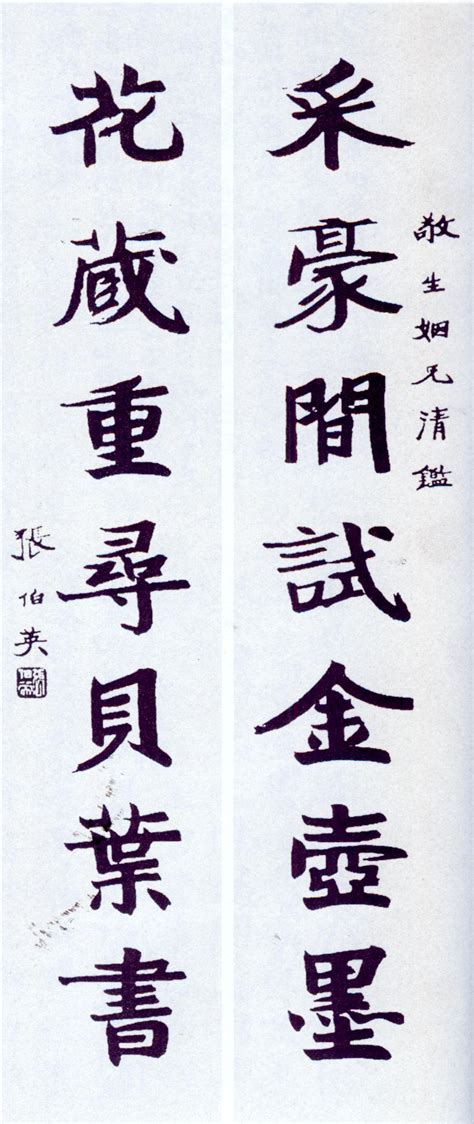 敬生姻兄清鑑
采豪間試金壺墨
花藏重尋貝葉書
張伯英